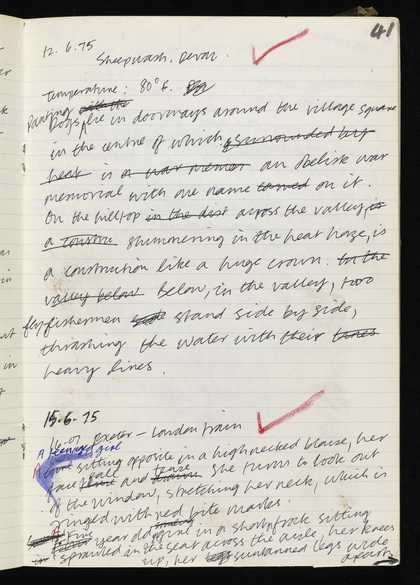 41
12.6.75
Sheepwash, Devon.
Temperature: 80°F.
Panting dogs lie in doorways around the village square
in the centre of which, surrounded by
heat is a war memor an obelisk war
memorial with one name carved on it.
On the hilltop in the dist across the valley,
a shimmering in the heat haze, is
a construction like a huge crown. In the
valley below Below, in the valley, two
flyfishermen stand side by side,
thrashing the water with their lines
heavy lines.
15.6.75
16.07 Exeter – London train
A teenage girl
sitting opposite in a highnecked blouse, her
face and tense she turns to look out
of the window, stretching her neck, which is
ringed with red bite marks.
A five year old girl in a short frock sitting
sprawled in the seat across the aisle, her knees
up, her suntanned legs wide
apart.